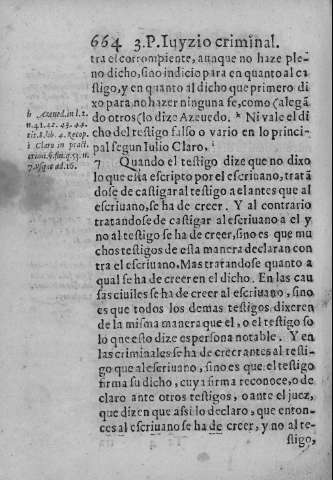 664 3.P. Iuyzio criminal.
tra el corrompiente, aunque no haze ple-
no dicho, sino indicio para en quanto al ca
stigo, y en quanto al dicho que primero di
xo para no hazer ninguna fe, como (alegã
do otros (lo dize Azeuedo. h Ni vale el di
cho del testigo falso o vario en lo princi-
pal segun Iulio Claro, i
h Azeued. in l. 2.
n. 41. 42. 43. 44.
tit. 8. lib. 4. Recop.
i Claro in pract.
crimi. §. fin. q. 53. n.
7. vsque ad. 16.
7 Quando el testigo dize que no dixo
lo que està escripto por el escriuano, tratã
dose de castigar al testigo a el antes que al
escriuano, se ha de creer. Y al contrario
tratandose de castigar al escriuano a el y
no al testigo se ha de creer, sino es que mu
chos testigos de esta manera declaran con
tra el escriuano. Mas tratandose quanto a
qual se ha de creer en el dicho. En las cau
sas ciuiles se ha de creer al escriuano, sino
es que todos los demas testigos dixeren
de la misma manera que el, o el testigo so
lo que esto dize es persona notable. Y en
las criminales se ha de creer antes al testi-
go que al escriuano, sino es que el testigo
firma su dicho, cuya firma reconoce, o de
claro ante otros testigos, o ante el juez,
que dizen que assi lo declaro, que enton-
ces al escriuano se ha de creer, y no al te-
stigo,